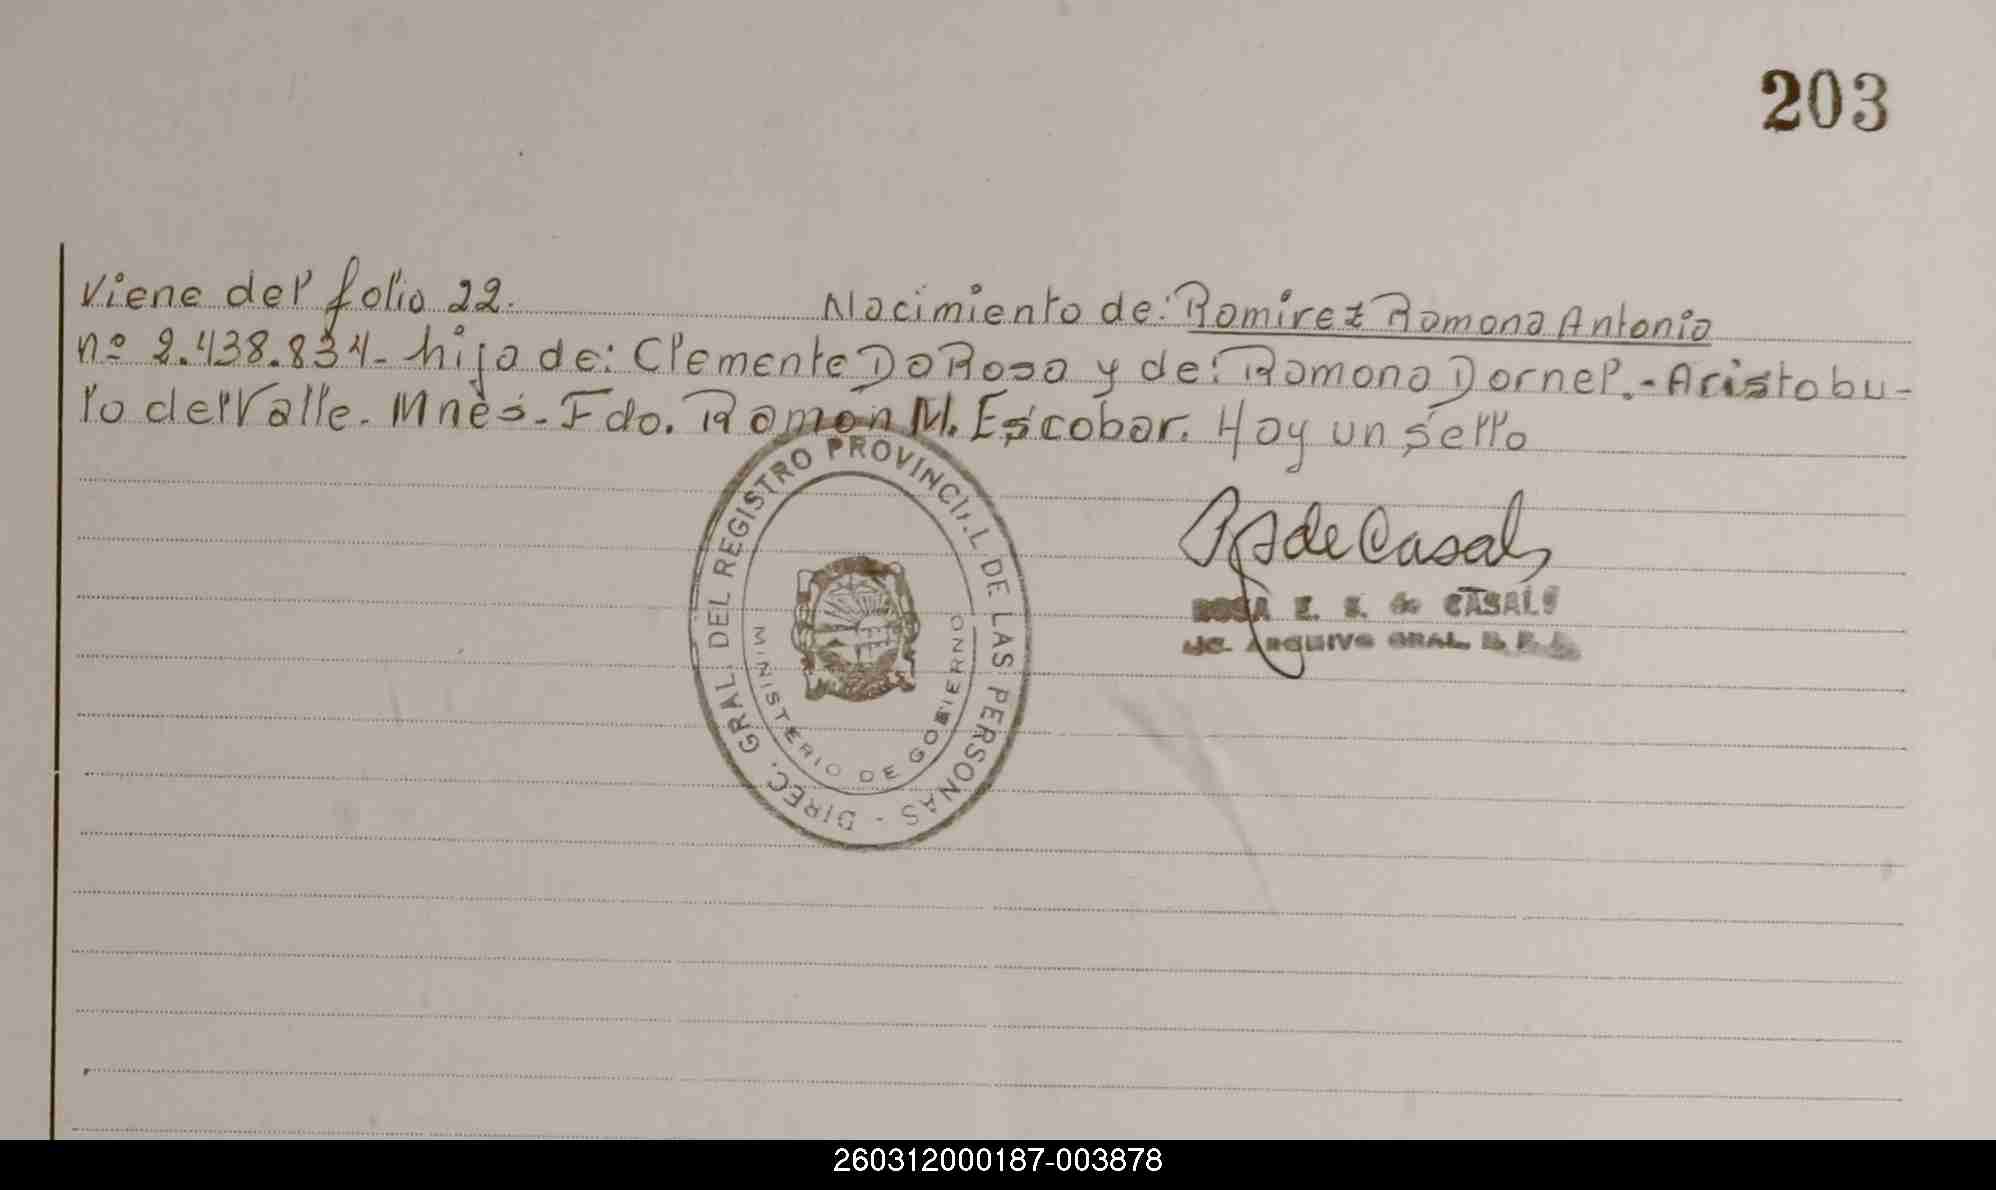 203
Viene del folio 22. Nacimiento de: Ramirez Ramona Antonia
nº 2.438.834- hija de: Clemente Da Rosa y de: Ramona Dornel.- Aristobu-
lo del Valle. Mnes.- Fdo. Ramón M. Escobar. Hay un sello
DIREC. GRAL. DEL REGISTRO PROVINCIAL DE LAS PERSONAS -
MINISTERIO DE GOBIERNO
de Casals
ROSA E. S. de CASALS
ARQUIVO GRAL.
260312000187-003878